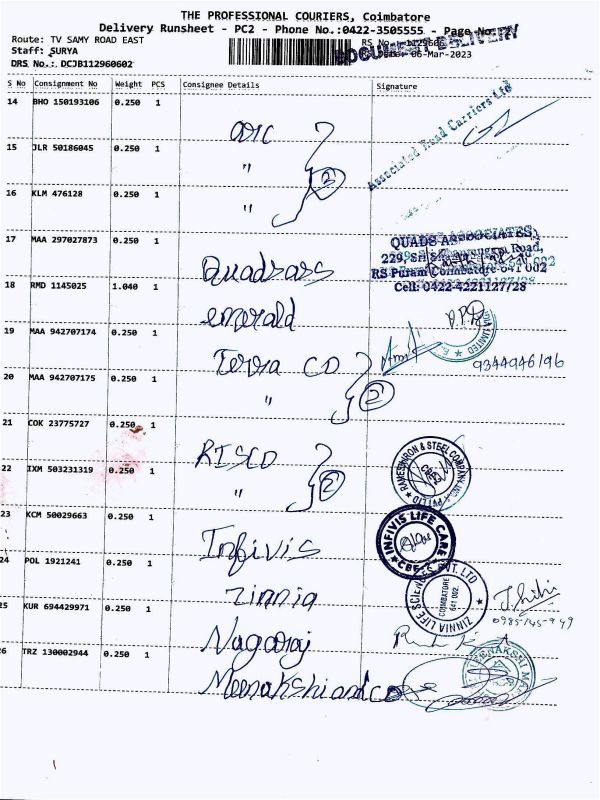 THE PROFESSIONAL COURIERS, Coimbatore
Delivery Runsheet - PC2 - Phone No.:0422-3505555 - Page No:
Route: TV SAMY ROAD EAST
Staff: SURYA
DRS No.: DCJB112960602
DOCUMENT DELIVERY
06-Mar-2023
S No Consignment No Weight PCS Consignee Details Signature
14 BHO 150193106 0.250 1 ARC
Associated Road Carriers Ltd
15 JLR 50186045 0.250 1 "
2
16 KLM 476128 0.250 1 "
17 MAA 297027873 0.250 1 Quadzass
QUADS ASSOCIATES,
229, Sri Shanmugam Road,
RS Puram Coimbatore-641 002
Cell: 0422-4221127/28
18 RMD 1145025 1.040 1 emerald
19 MAA 942707174 0.250 1 Terra CO
9344946196
20 MAA 942707175 0.250 1 "
2
21 COK 23775727 0.250 1 RISCO
RAMESH IRON & STEEL COMPANY
22 IXM 503231319 0.250 1 "
2
23 KCM 50029663 0.250 1 Infivis
INFIVIS LIFE CARE
CBE
24 POL 1921241 0.250 1 Zinnia
ZINNIA LIFE SCIENCES PVT. LTD
COIMBATORE
641 002.
25 KUR 694429971 0.250 1 Nagaraj
26 TRZ 130002944 0.250 1 Meenakshi and co
MEENAKSHI